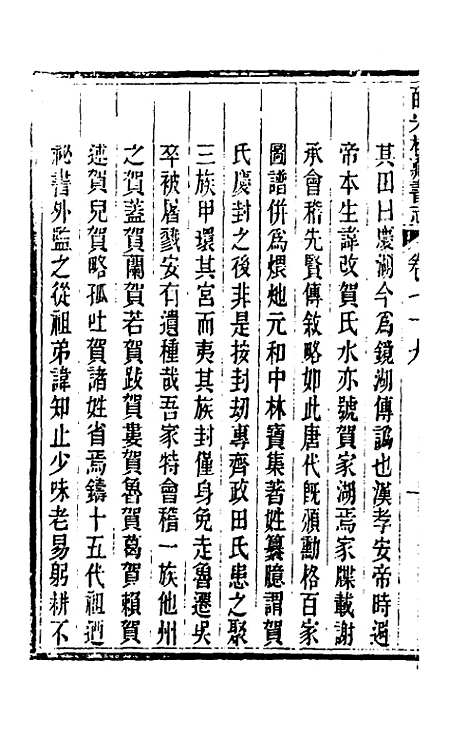 其田曰慶湖今爲鏡湖傳譌也漢孝安帝時過
帝本生諱改賀氏水亦號賀家湖焉家牒載謝
承會稽先賢傳敘略如此唐代旣頒勳格百家
圖譜併爲煨灺元和中林寶集著姓纂臆謂賀
氏慶封之後非是按封劫專齊政田氏患之聚
三族甲環其宮而夷其族封僅身免走魯遷吳
卒被屠戮安有遺種哉吾家特會稽一族他州
之賀蓋賀蘭賀若賀跋賀婁賀魯賀葛賀賴賀
述賀兒賀略孤吐賀諸姓省焉鑄十五代祖迺
祕書外監之從祖弟諱知止少味老易躬耕不
藏書志
卷